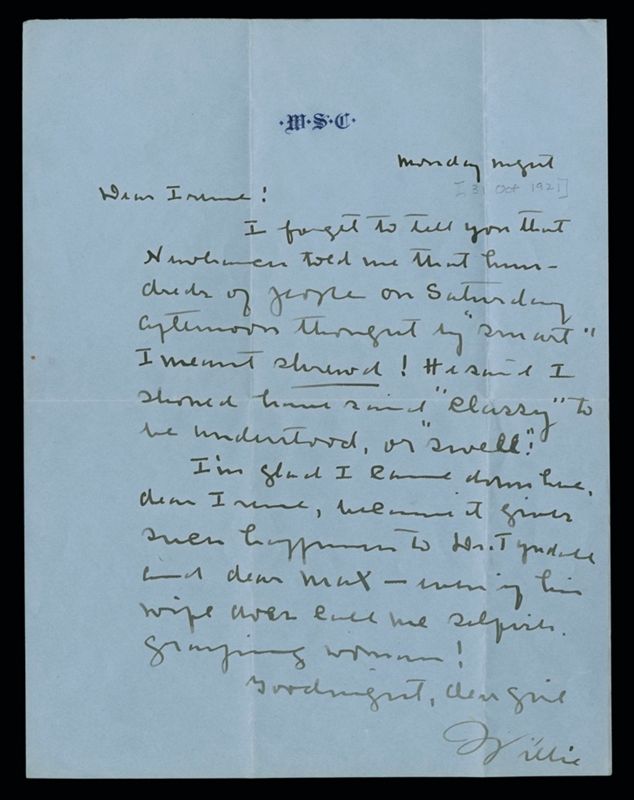 ·W·S·C·
Monday night
[31 Oct 1921]
Dear Irene!
I forgot to tell you that
Newbranch told me that hun-
dreds of people on Saturday
afternoon thought by "smart"
I meant shrewd! He said I
should have said "classy" to
be understood, or "swell."
I'm glad I came down here,
dear Irene, because it gives
such happiness to Dr. Tyndale
and dear Max — even if his
wife does call me selfish.
grasping woman!
Goodnight, dear girl
Willie